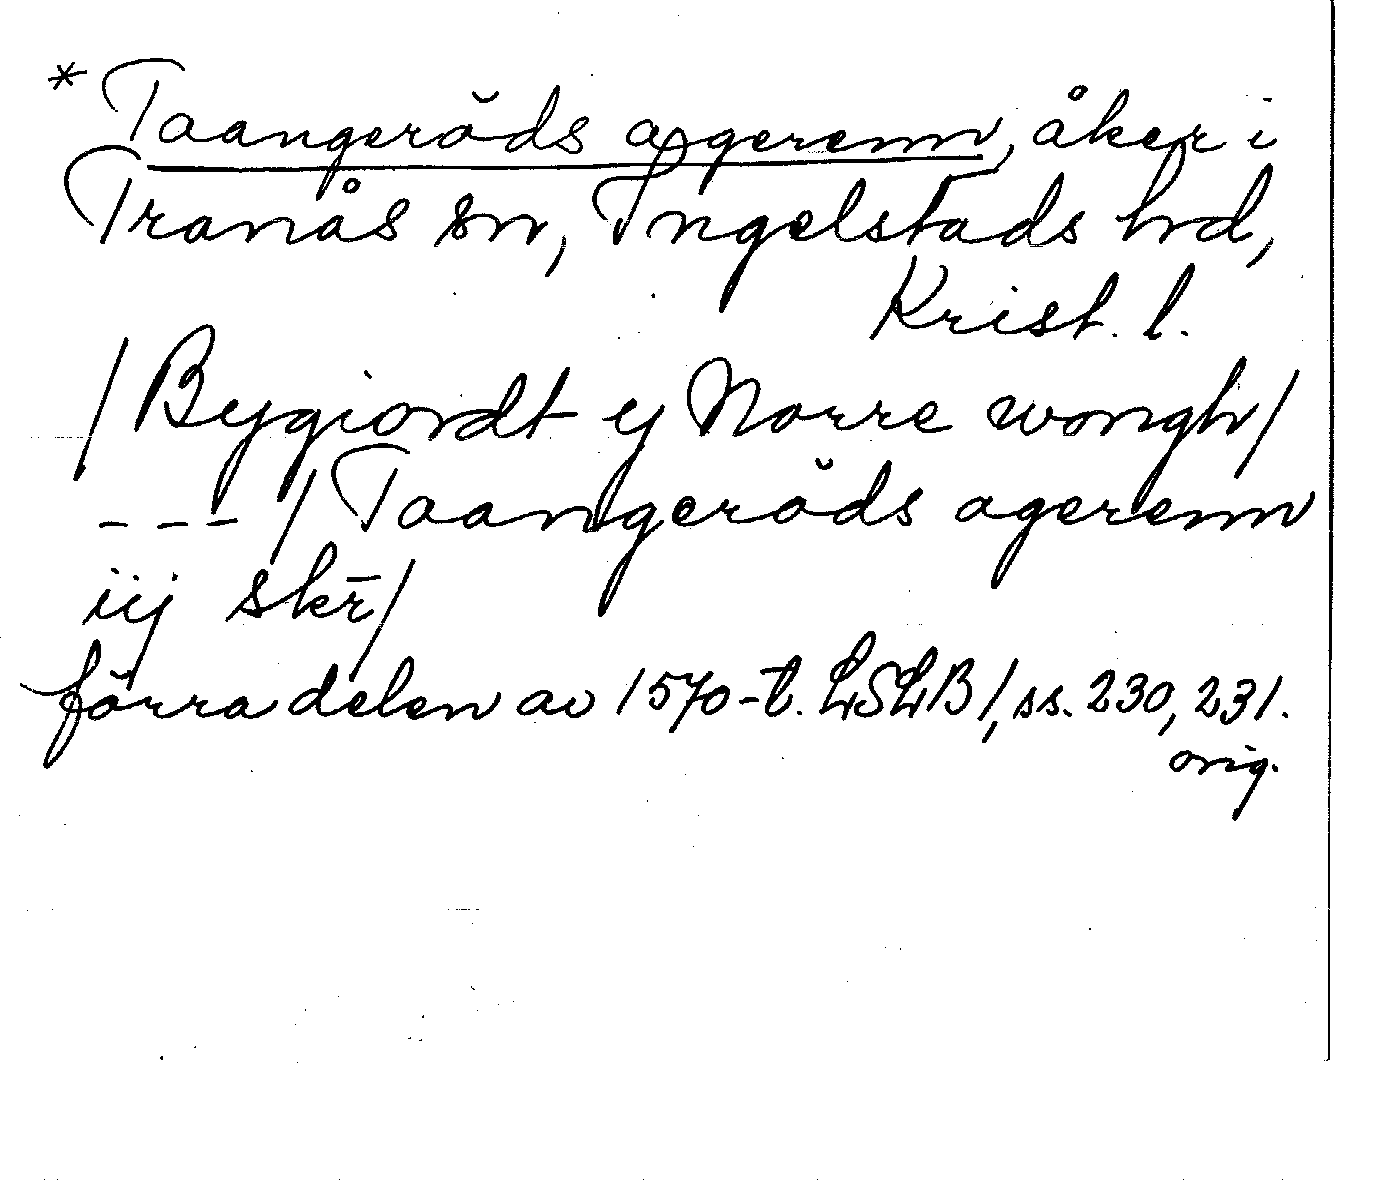 * Taangerǒds agerenn, åker i
Tranås sn, Ingelstads hrd,
Krist. l.
/Bygiordt ÿ Norre wongh/
--- /Taangerǒds agerenn
iij skr̄/
förra delen av 1570-t. LSLB/, ss. 230, 231.
orig.